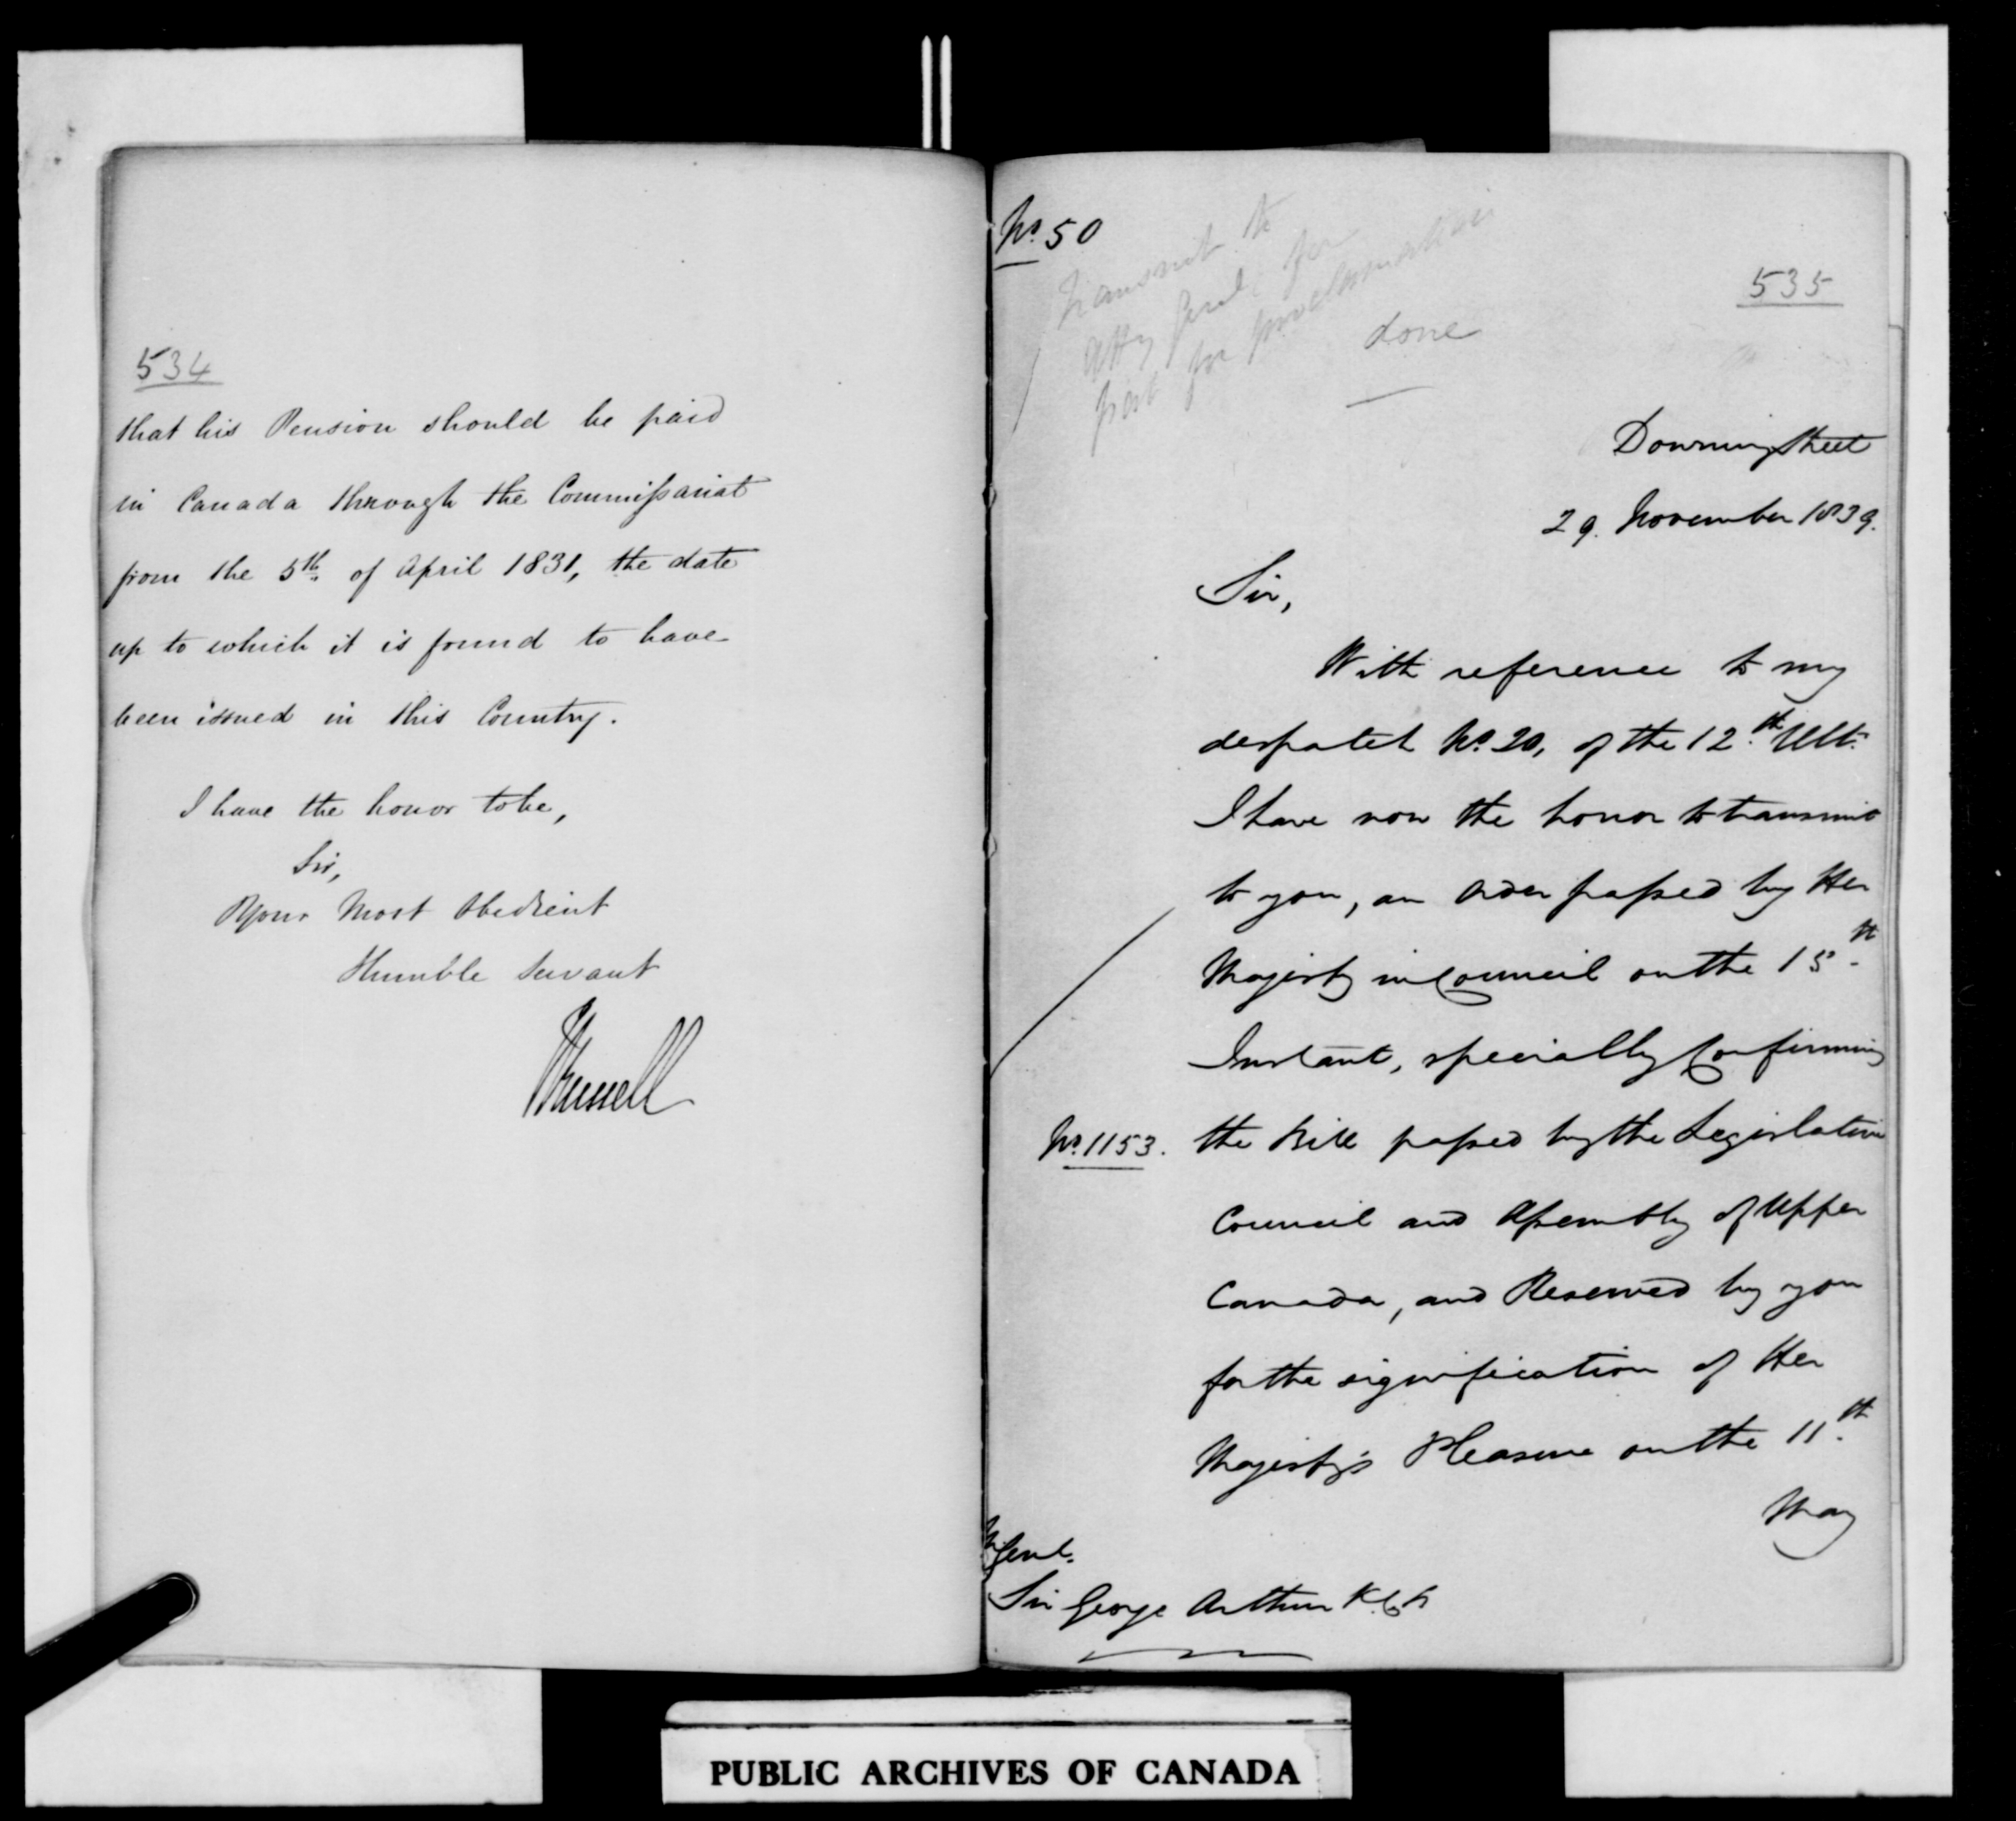 534
that his Pension should be paid
in Canada through the Commissariat
from the 5th of April 1831, the date
up to which it is found to have
been issued in this Country.
I have the honor to be,
Sir,
Your Most Obedient
Humble Servant
JRussell
No. 50
Transmit to
Atty Genl. for
for proclamation
done
535
Downing Street
29. November 1839.
Sir,
With reference to my
despatch No. 20, of the 12th. Ult.
I have now the honor to transmit
to you, an Order passed by Her
Majesty in Council on the 15th
Instant, specially confirming
No. 1153. the Bill passed by the Legislative
Council and Assembly of Upper
Canada, and Reserved by you
for the signification of Her
Majesty's Pleasure on the 11th.
May
M Genl.
Sir George Arthur K.C.H
PUBLIC ARCHIVES OF CANADA